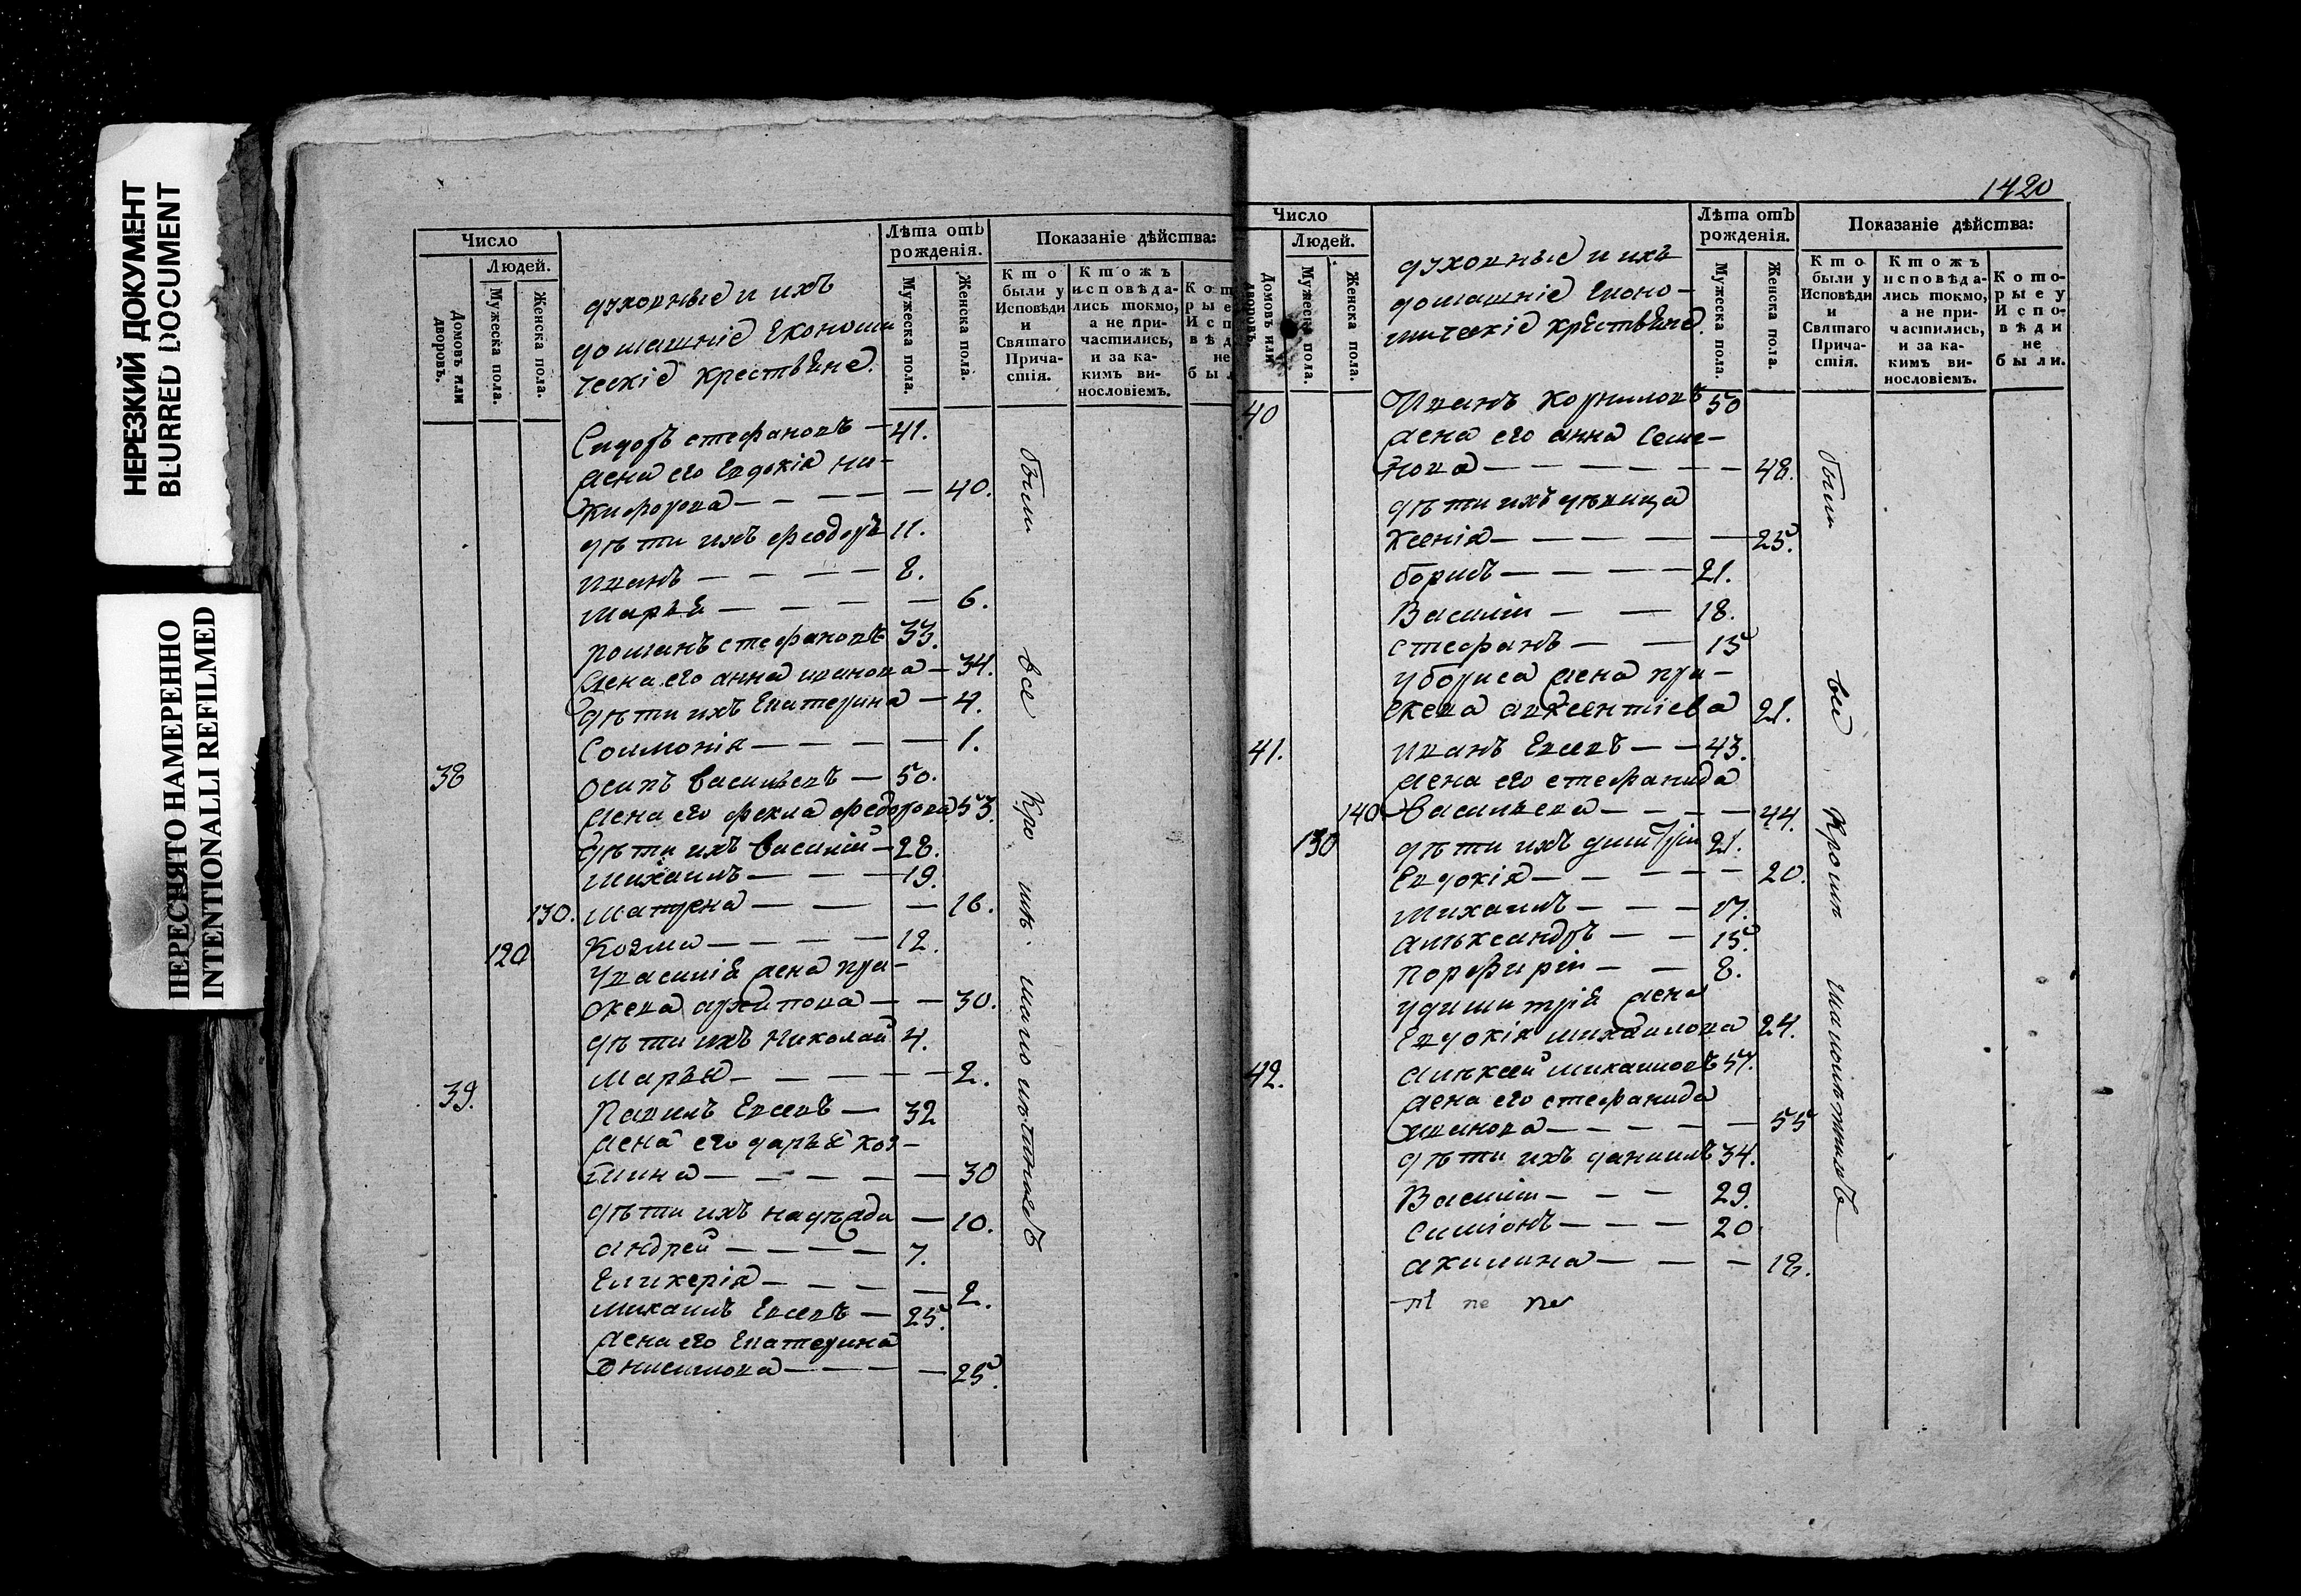 НЕРЕЗКИЙ ДОКУМЕНТ
BLURRED DOCUMENT
ПЕРЕСНЯТО НАМЕРЕННО
INTENTIONALLI REFILMED
Число
Людей.
Домовъ или дворовъ.
Мужеска пола.
Женска пола.
духовные и ихъ
домашніе Економи
ческіе крестьяне.
Лѣта отъ рожденія.
Мужеска пола.
Женска пола.
Показаніе дѣйства:
Кто были у Исповѣди и Святаго Причастія.
Ктожъ исповѣдались токмо, а не причастились, и за какимъ винословіемъ.
Сидоръ стефановъ — 41.
жена его Евдокія Ни-
кифорова — — — — — 40.
дѣти ихъ феодоръ 11.
иванъ — — — — 8.
марья — — — — 6.
романъ стефановъ 33.
жена его анна иванова — 34.
дѣти ихъ Екатерина — 4.
Соломонія — — — — 1.
38 осипъ васильевъ — 50.
жена его фекла федорова 53.
дѣти ихъ василій — 28.
михаилъ — — — 19.
130. матрена — — — 16.
120 козма — — — — 12.
у василія жена пра-
сковья архипова — — 30.
дѣти ихъ Николай 4.
марья — — — — — 2.
39. Павелъ Евсевъ — 32
жена его дарья коз-
мина — — — — — 30
дѣти ихъ надежда — 10.
андрей — — — — 7.
Гликерія — — — — 2.
михаилъ Евсевъ — 25.
жена его Екатерина
Онисимова — — — — 25.
были все кромѣ малолѣтныхъ
1420
Число
Людей.
Домовъ или дворовъ.
Мужеска пола.
Женска пола.
духовные и ихъ
домашніе Эконо-
мическіе крестьяне.
Лѣта отъ рожденія.
Мужеска пола.
Женска пола.
Показаніе дѣйства:
Кто были у Исповѣди и Святаго Причастія.
Ктожъ исповѣдались токмо, а не причастились, и за какимъ винословіемъ.
Которые у Исповѣди не были.
40 Иванъ корниловъ 50
жена его анна Семе-
нова — — — — — — 48.
дѣти ихъ дѣвица
Ксенія — — — — — 25.
борисъ — — — — 21.
Василій — — 18.
стефанъ — — 15
у бориса жена пра-
авксентіева 21.
41. иванъ Евсевъ — — 43.
жена его стефанида
140 васильева — — — — 44.
130 дѣти ихъ димитрій 21.
Евдокія — — — — — 20.
михаилъ — — — 17.
алѣксандръ — — 15.
порфирій — — 8.
у димитрія жена
Евдокія михаилова 24.
42. алѣксѣй михаиловъ 57.
жена его стефанида
иванова — — — — — 55
дѣти ихъ даниилъ 34.
Василій — — — 29.
симіонъ — — — 20
акилина — — — 18.
были все кромѣ малолѣтныхъ